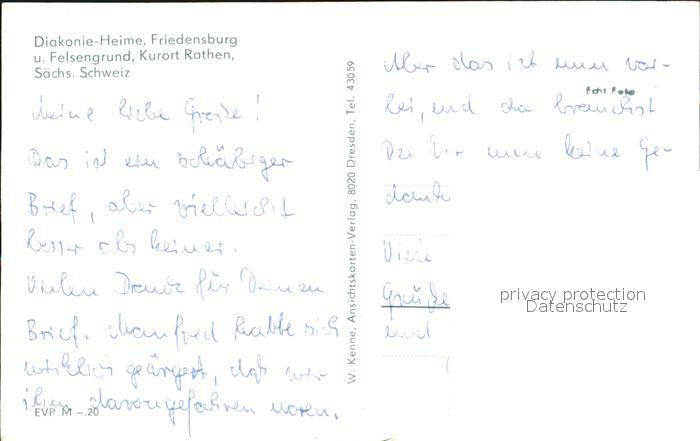 Diakonie-Heime, Friedensburg
u. Felsengrund, Kurort Rathen,
Sächs. Schweiz
Meine liebe Große!
Das ist ein schäbiger
Brief, aber vielleicht
besser als keiner.
Vielen Dank für Deinen
Brief. Manfred hatte sich
wirklich geärgert, daß wir
ihm davongefahren waren.
EVP M -.20
W. Kenne, Ansichtskarten-Verlag, 8020 Dresden, Tel. 43059
Aber das ist nun vor-
Echt Foto
bei, und da brauchst
Du Dir nun keine Ge-
danke
Viele
Grüße
und
privacy protection
Datenschutz